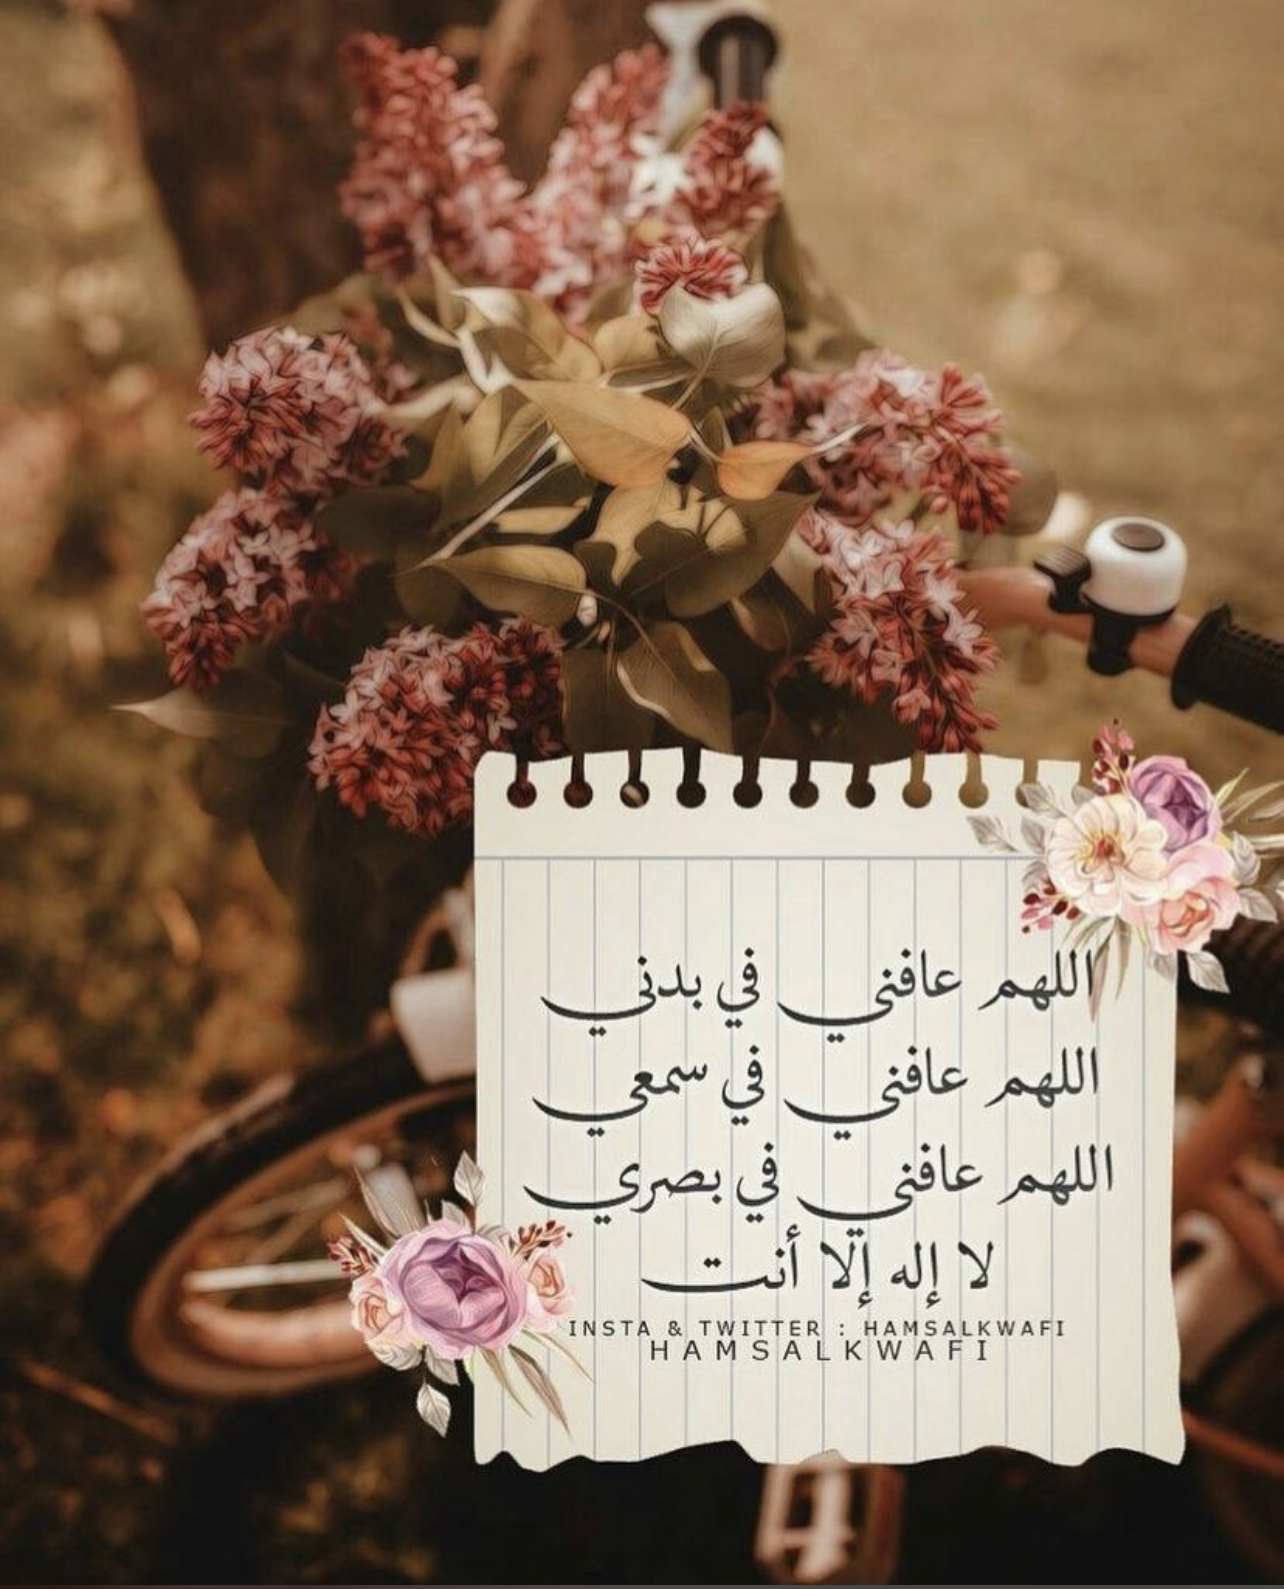 اللهم عافني في بدني
اللهم عافني في سمعي
اللهم عافني في بصري
لا إله إلا أنت
INSTA & TWITTER : HAMSALKWAFI
HAMSALKWAFI